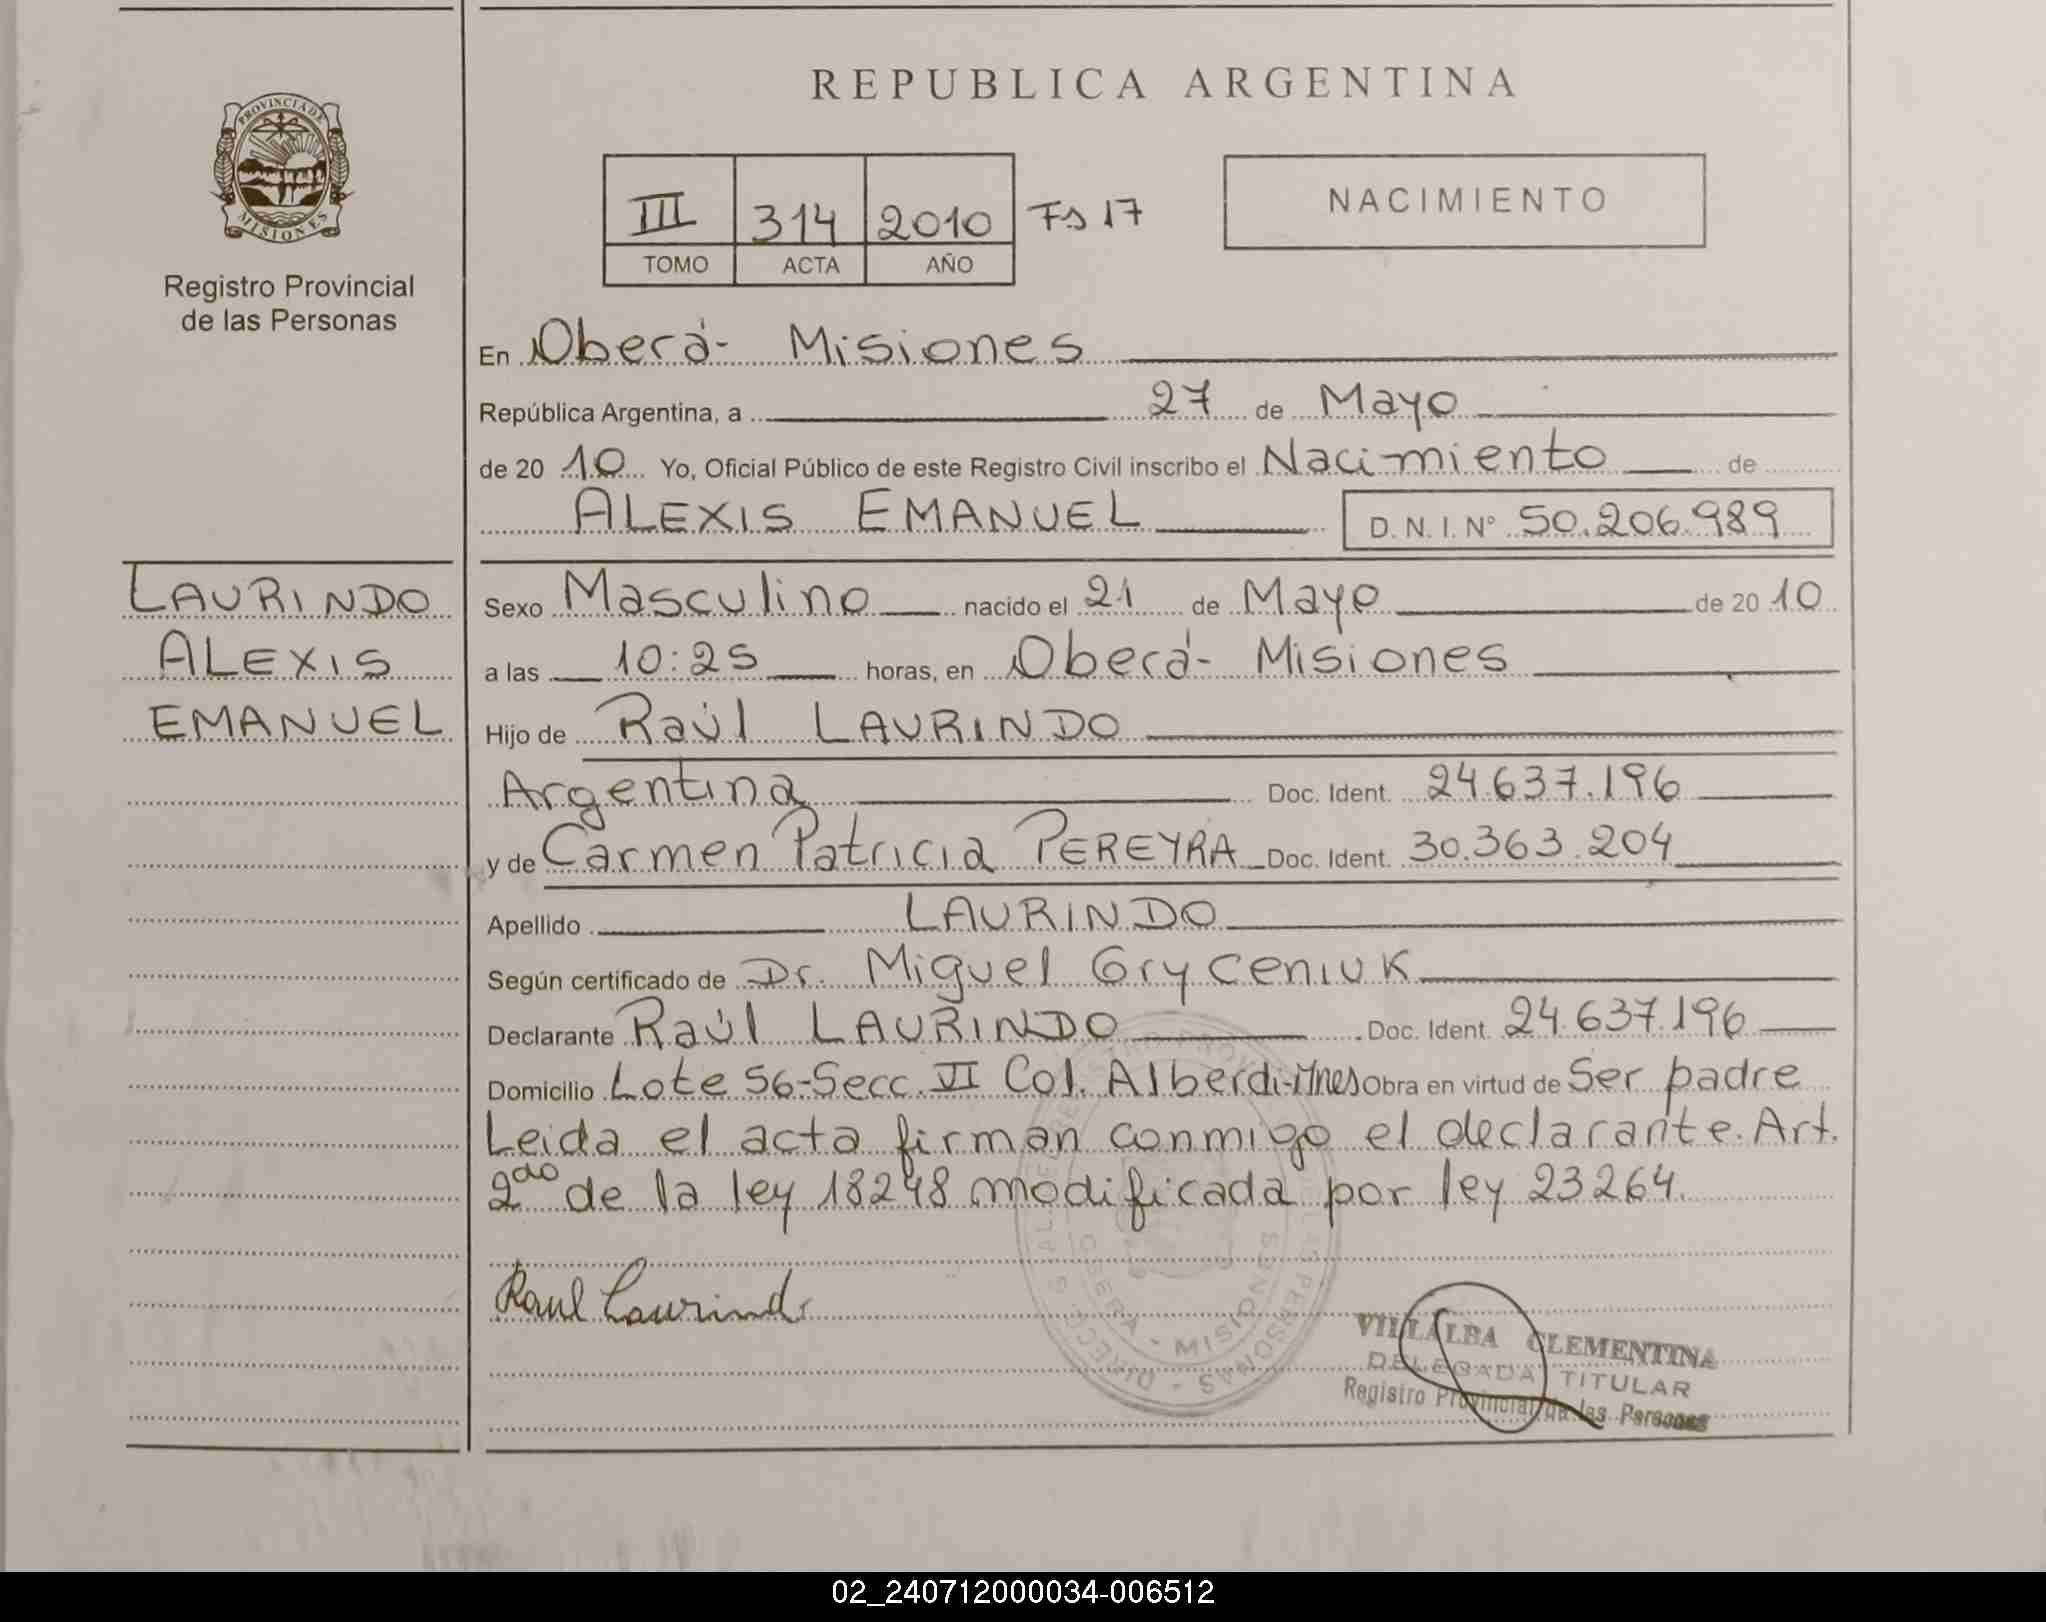 REPUBLICA ARGENTINA
PROVINCIA DE MISIONES
Registro Provincial
de las Personas
III 314 2010 Fs 17
TOMO ACTA AÑO
NACIMIENTO
En Oberá- Misiones
República Argentina, a 27 de Mayo
de 20 10 Yo, Oficial Público de este Registro Civil inscribo el Nacimiento de
ALEXIS EMANUEL D.N.I. Nº 50.206.989
LAURINDO
ALEXIS
EMANUEL
Sexo Masculino nacido el 21 de Mayo de 20 10
a las 10:25 horas, en Oberá- Misiones
Hijo de Raúl LAURINDO
Argentina Doc. Ident. 24.637.196
y de Carmen Patricia PEREYRA Doc. Ident. 30.363.204
Apellido LAURINDO
Según certificado de Dr. Miguel Gryceniuk
Declarante Raúl LAURINDO Doc. Ident. 24.637.196
Domicilio Lote 56-Secc. VI Col. Alberdi-Mnes Obra en virtud de Ser padre
Leida el acta firman conmigo el declarante. Art.
2do de la ley 18248 modificada por ley 23264.
Raul Laurindo
OBERA - MISIONES
VILLALBA CLEMENTINA
DELEGADA TITULAR
Registro Provincial de las Personas
02_240712000034-006512